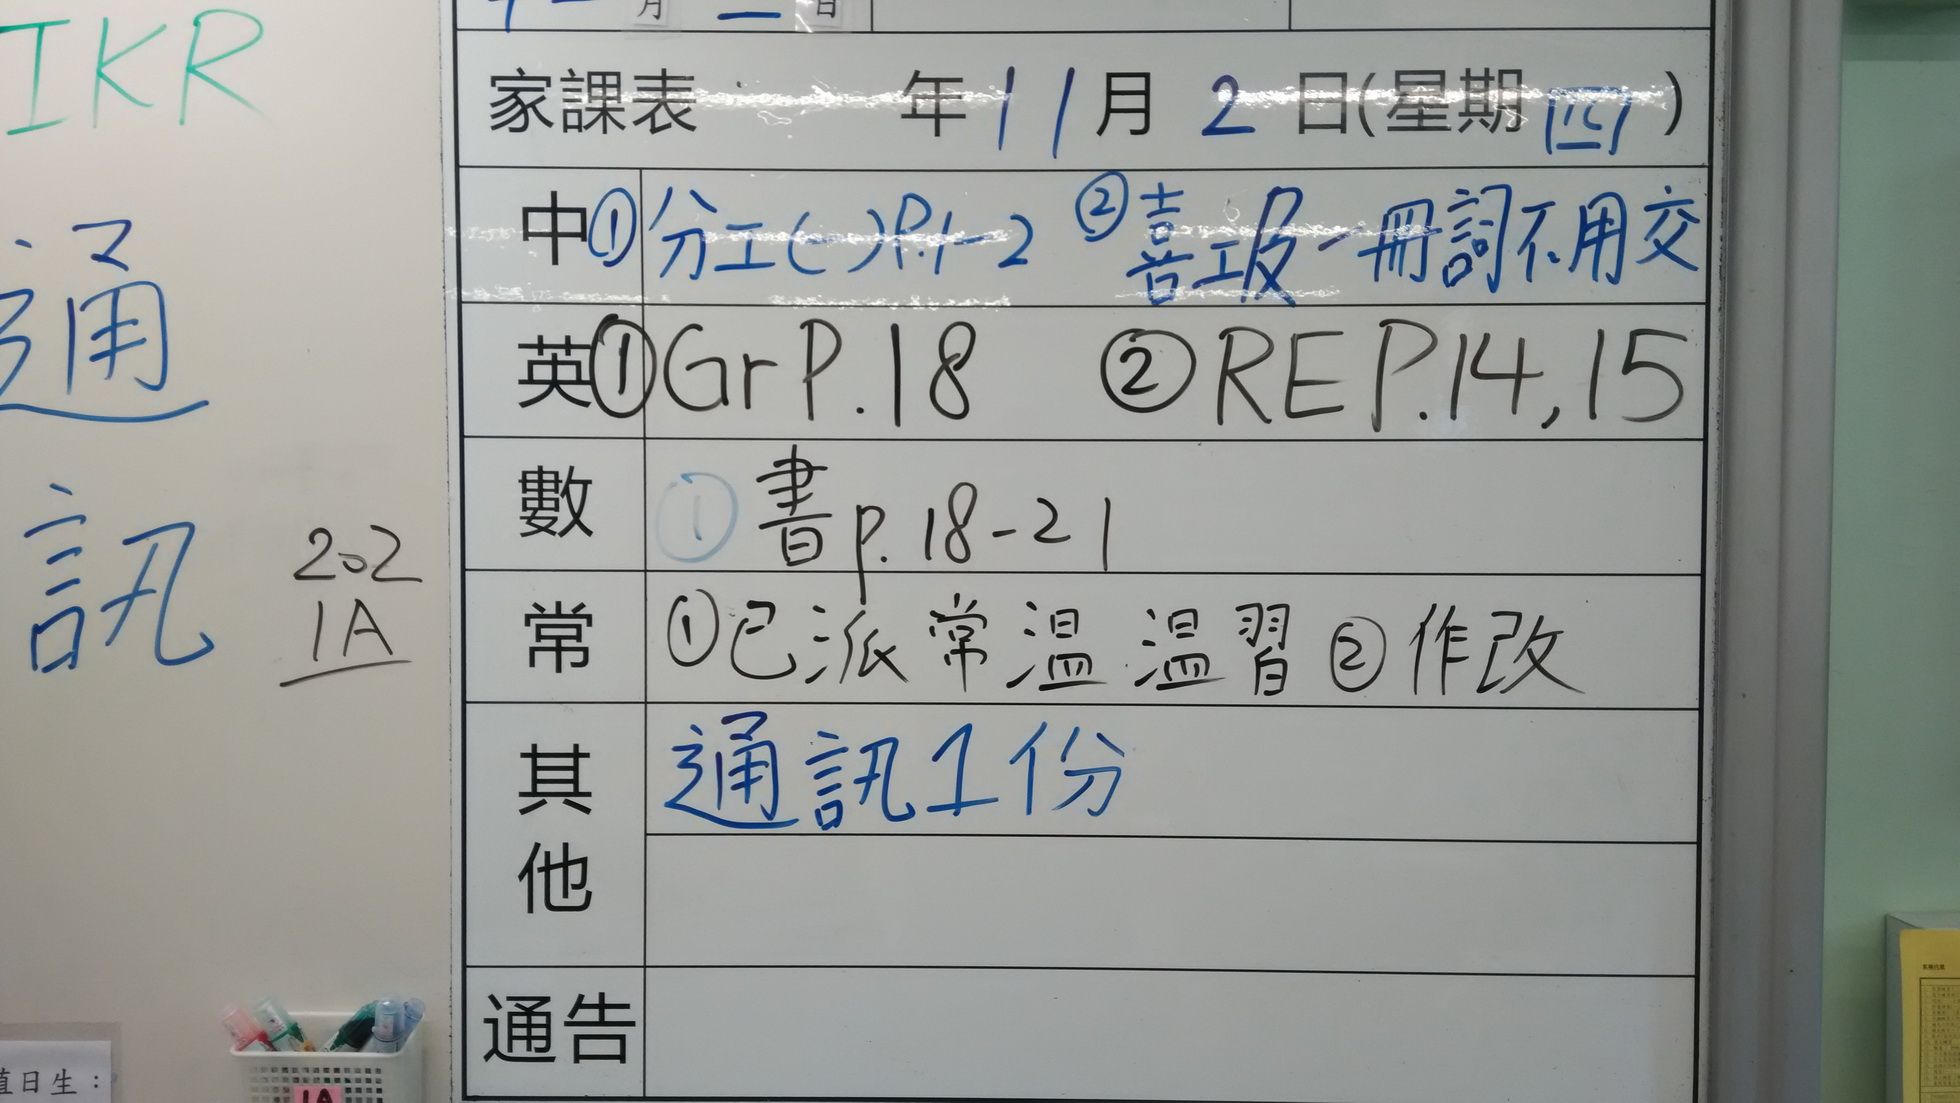 IKR
通
訊
202
1A
月 二 日
家課表 年 11 月 2 日(星期 四 )
中 ① 分工(一)P.1-2 ② 喜 一冊詞不用交
英 ① Gr P.18 ② RE P.14,15
數 ① 書 p.18-21
常 ① 已派常溫 溫習 ② 作改
其他 通訊1份
通告
值日生：
1A